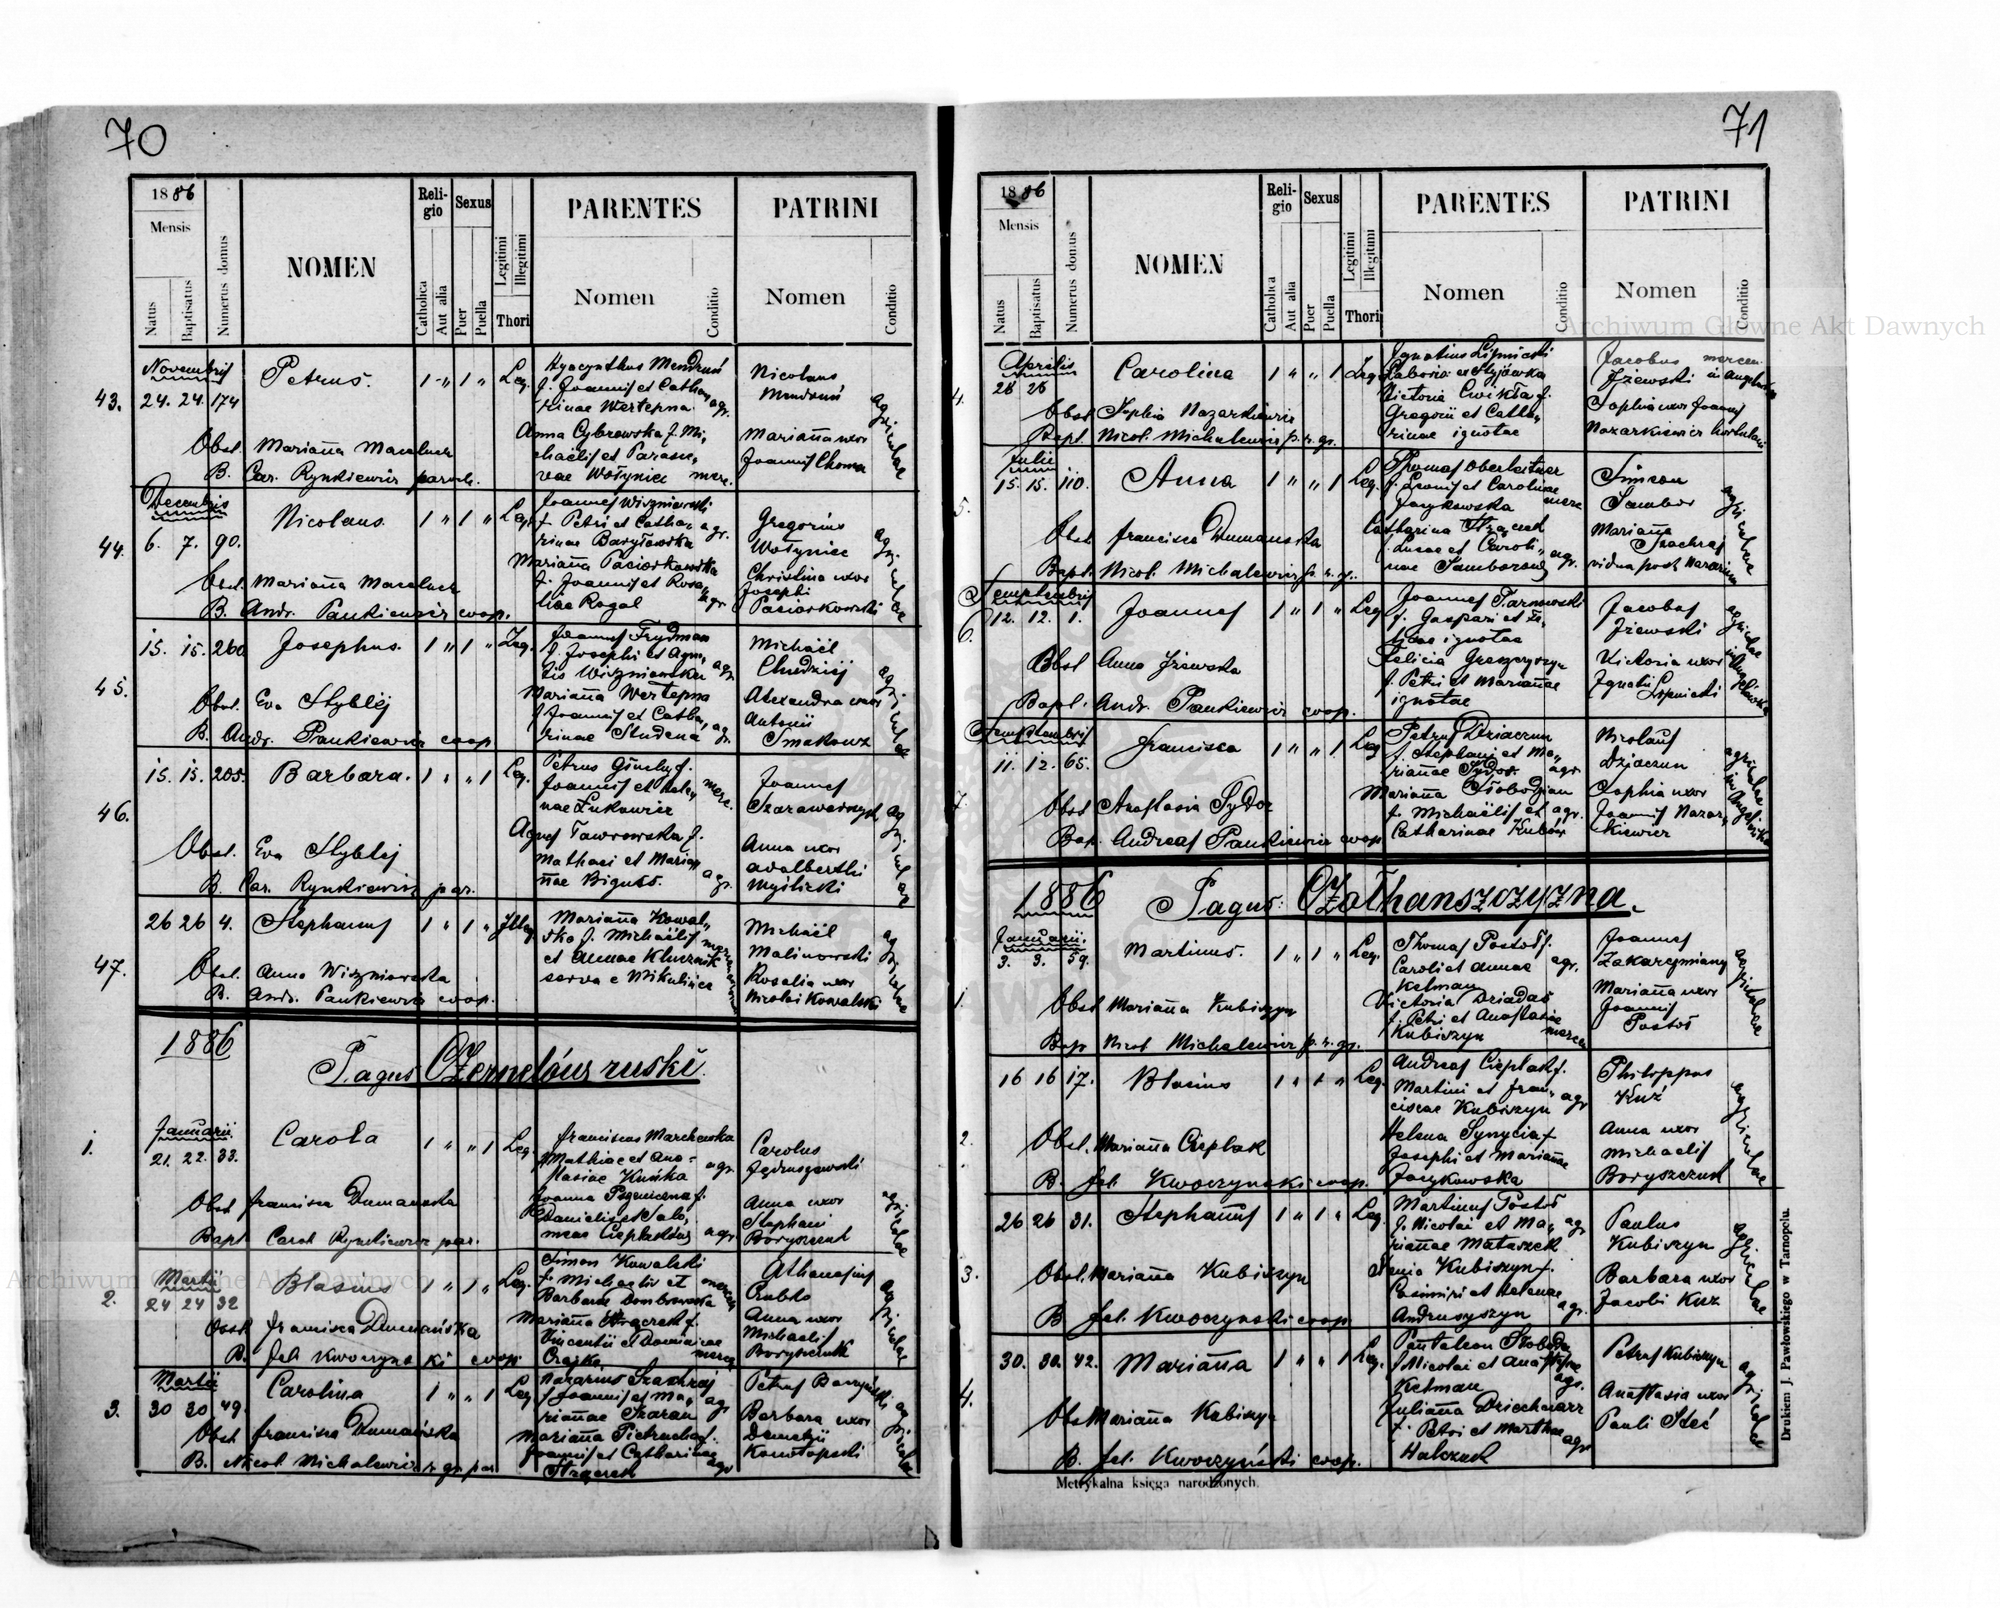 70
1886
Mensis
Natus
Baptisatus
Numerus domus
NOMEN
Religio
Catholica
Aut alia
Sexus
Puer
Puella
Legitimi
Illegitimi
Thori
PARENTES
Nomen
Conditio
PATRINI
Nomen
Conditio
43.
Novembris
24. 24. 174
Petrus.
1 " 1 "
Leg.
Hyacynthus Mendruń
f. Joannis et Catha
rinae Wertepna agr.
Anna Cybrowska f. Mi,
chaelis et Parasce,
vae Wołyniec merc.
Nicolaus
Mendruń
Marianna uxor
Joannis Choma
agricolae
Obst. Marianna Maceluch
B. Car. Rynkiewicz paroch.
44.
Decembris
6. 7. 90.
Nicolaus
1 " 1 "
Leg.
Joannes Wiszniewski
f. Petri et Catha, agr.
rinae Baryłowska
Marianna Paciorkowska
f. Joannis et Rosa,
liae Rogal agr.
Gregorius
Wołyniec
Christina uxor
Josephi
Paciorkowski
agricolae
Obst. Marianna Maceluch
B. Andr. Pankiewicz coop.
45.
15. 15. 260
Josephus.
1 " 1 "
Leg.
Joannes Frydman
f. Josephi et Agne,
tis Wiszniewska agr.
Marianna Wertepna
f. Joannis et Catha,
rinae Studena agr.
Michaël
Chudzicj
Alexandra uxor
Antonii
Smakouz
agricolae
Obst. Eva Styblej
B. Andr. Pankiewicz coop.
46.
15. 15. 205.
Barbara.
1 " " 1
Leg.
Joannis et Hele, merc.
nae Łukowicz
Agnes Tawrowska f.
Mathaei et Marian
nae Bigus. agr.
Joannes
Szarawarczyk
Anna uxor
adalberthi
Myślicki
agricolae
Obst. Eva Styblej
B. Car. Rynkiewicz par.
47.
26 26 4.
Stephanus
1 " 1 "
Illeg.
Marianna Kowal,
ska f. Michaëlis
et Annae Kluznik
serva e Mikulińce
Michaël
Malinowski
Rosalia uxor
Nicolai Kowalski
agricolae
Obst. Anna Wiszniewska
B. Andr. Pankiewicz coop.
1886
Pagus Czernelów ruski.
1.
Januarii.
21. 22. 33.
Carola
1 " " 1
Leg.
Franciscus Marchewka
f. Mathiae et Ana-
stasiae Kuńka agr.
Joanna Pszeniczna f.
Danielis et Salo,
meae Cieplaków agr.
Carolus
Jędruszewski
Anna uxor
Stephani
Boryszczuk
agricolae
Obst. Francisca Dumanska
Bapt. Carol Rynkiewicz par.
2.
Martii
24 24 32
Blasius
1 " 1 "
Leg.
Simon Kowalski
f. Michaelis et
Barbara Dombrowska
Marianna Strączek f.
Vincentii et Dominicae
Athanasius
Anna uxor
Michaelis
Boryszczuk
agricolae
Obst. Francisca Dumańska
B. Fel. Kwoczynski coop.
3.
Martii
30 30 49.
Carolina
1 " " 1
Leg.
Nazarius Szachraj
f. Joannis et Ma, agr.
riannae Szaran
Marianna Pietrucha f.
Joannis et Catharinae agr
Strączek
Petrus Baczyński
Barbara uxor
Demetrii
Konotopski
agricolae
Obst. Francisca Dumańska
B. Nicol. Michalewicz r. gr. par.
71
1886
Mensis
Natus
Baptisatus
Numerus domus
NOMEN
Religio
Catholica
Aut alia
Sexus
Puer
Puella
Legitimi
Illegitimi
Thori
PARENTES
Nomen
Conditio
PATRINI
Nomen
Conditio
4.
Aprilis
26 26
Carolina
1 " " 1
Leg.
Ignatius Lipnicki
Victoria Cwikła f.
Gregorii et Catha,
rinae ignotae
Jacobus
Jżewski
Sophia uxor Joannis
Nazarkiewicz hortulani
Obst. Sophia Nazarkiewicz
Bapt. Nicol. Michalewicz p. r. gr.
5.
Julii
15. 15. 110.
Anna
1 " " 1
Leg.
Thomas Oberleitner
f. Leonis et Carolinae
Jacykowska merc
Catharina Strączek
f. Lucae et Caroli,
nae Samborski agr.
Simeon
Sambor
Marianna
Szachraj
vidua post Nazarium
agricolae
Obst. Francisca Dumanska
Bapt. Nicol. Michalewicz p. r. gr.
6.
Semptembris
12. 12. 1.
Joannes
1 " 1 "
Leg.
Joannes Tarnowski
f. Gaspari et Fe,
liciae ignotae
Felicia Greszczyszyn
f. Petri et Mariannae
ignotae
Jacobus
Jżewski
Victoria uxor
Ignatii Lipnicki
agricolae in Angelówka
Obst. Anna Jżewska
Bapt. Andr. Pankiewicz coop.
7.
Semptembris
11. 12. 65.
Francisca
1 " " 1
Leg
Petrus Dziaczun
f. Stephani et Ma,
riannae Sydor agr
Marianna Słobodzian
f. Michaëlis et agr.
Catharinae Kubów
Nicolaus
Dziaczun
Sophia uxor
Joannis Nazar,
kiewicz
agricolae in Angelówka
Obst. Anastasia Sydor
Bap. Andreas Pankiewicz coop
1886 Pagus: Czołhanszczyzna.
1.
Januarii.
3. 3. 59.
Martinus.
1 " 1 "
Leg.
Thomas Postoł f.
Caroli et Annae agr.
Kelman
Victoria Dziadaś
f. Petri et Anastasiae
Kubiszyn merc
Joannes
Zakarczmiany
Marianna uxor
Joannis
Postoł
agricolae
Obst Marianna Kubiszyn
Bap. Nicol Michalewicz p. r. gr.
2.
16 16 17.
Blasius
1 " 1 "
Leg.
Andreas Cieplak f.
Martini et Fran, agr
ciscae Kubiszyn
Helena Synycia f.
Josephi et Mariannae
Jacykowska
Philippus
Kuź
Anna uxor
Michaelis
Boryszczuk
agricolae
Obst. Marianna Cieplak
B. Fel. Kwoczynski coop.
3.
26 26 31.
Stephanus
1 " 1 "
Leg
Martinus Postoł
f. Nicolai et Ma, agr
riannae Mataszek
Xenia Kubiszyn f.
Casimiri et Helenae
Andrusyszyn agr.
Paulus
Kubiszyn
Barbara uxor
Jacobi Kuz
agricolae
Obst. Marianna Kubiszyn
B Fel. Kwoczynski coop.
4.
30. 30. 42.
Marianna
1 " " 1
Leg.
Pantaleon Słoboda
f. Nicolai et Anastasiae
Kelman agr.
Julianna Dziechciarz
f. Petri et Marthae agr
Halczuk
Petrus Kubiszyn
Anastasia uxor
Pauli Steć
agricolae
Obst Marianna Kubiszyn
B. Fel. Kwoczyński coop.
Metrykalna księga narodzonych.
Drukiem J. Pawłowskiego w Tarnopolu.
Archiwum Główne Akt Dawnych
Archiwum Główne Akt Dawnych